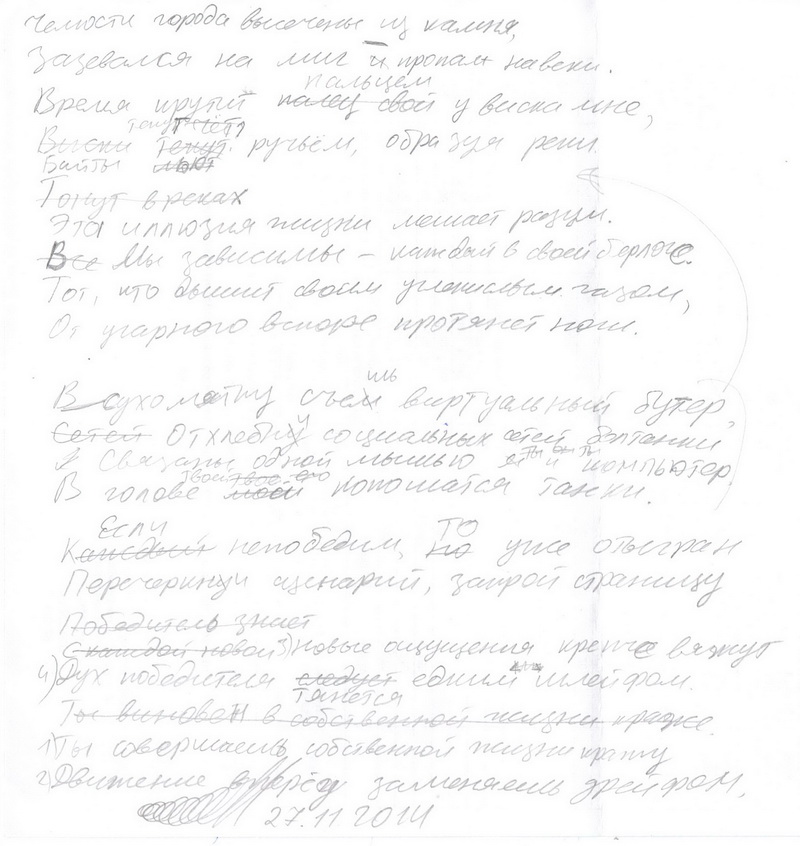 Челюсти города высечены из камня,
Зазевался на миг и пропал навеки.
пальцем
Время крутит палец свой у виска мне,
текут течёт
Виски текут ручьём, образуя реки
Байты льют
Тонут в реках
Эта иллюзия жизни мешает разум.
Все Мы зависимы – каждый в своей берлоге.
Тот, кто дышит своим углекислым газом,
От угарного вскоре протянет ноги.
иль
В сухомятку съем виртуальный бутер,
Сетей Отхлебну социальных сетей болтанки
Связаны одной мышью ты и компьютер.
твоей твоею его
В голове моей копошатся танки.
Если то
Каждый непобедим, но уже отыгран
Перечеркни сценарий, закрой страницу
Победитель знает
С каждой новой 3) Новые ощущения крепче вяжут
4) Дух победителя следует едким шлейфом.
тянется
Ты виновен в собственной жизни краже.
1) Ты совершаешь собственной жизни кражу
2) Движение вперёд заменяешь дрейфом,
27.11 2014